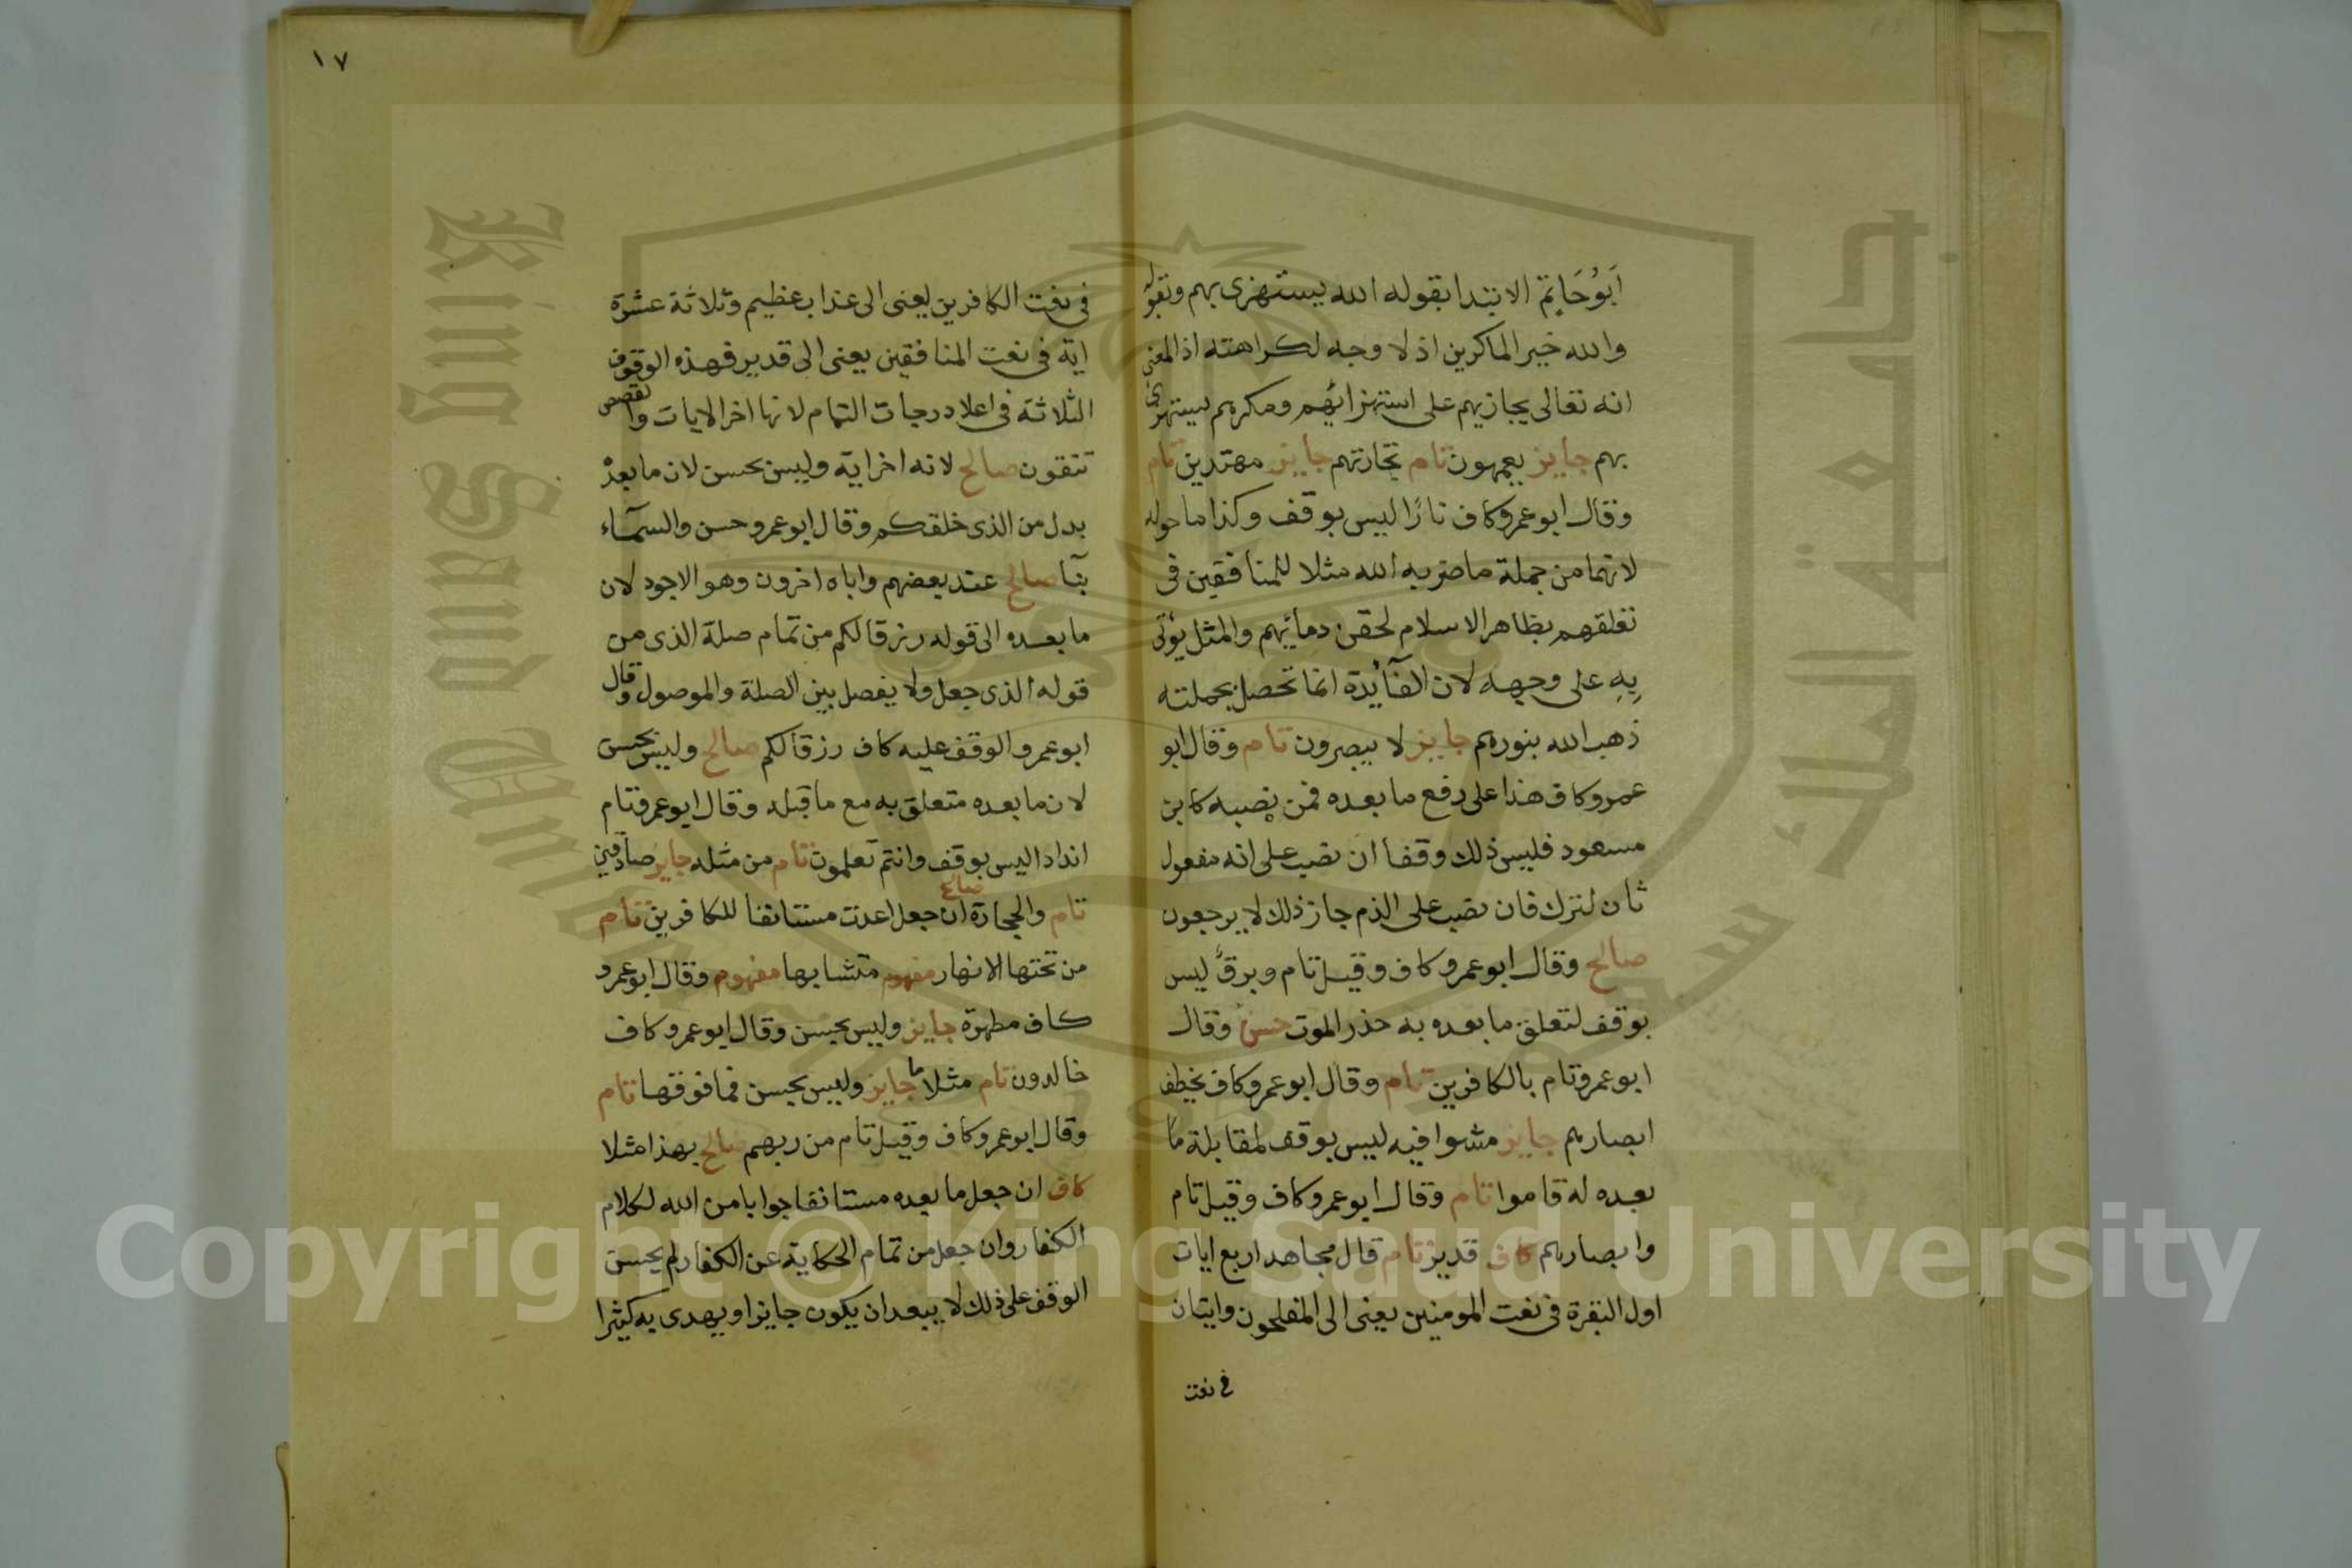 ابوحاتم الابتدا بقوله الله يستهزى بهم وبقوله
والله خير الماكرين اذ لا وجه لكراهته اذ المعنى
انه تعالى يجازيهم على استهزائهم ومكرهم يستهزى
بهم جايز يعمهون تام تجارتهم جايز مهتدين تام
وقال ابو عمرو كاف نارًا ليس بوقف وكذا ما حوله
لانهما من جملة ما ضربه الله مثلا للمنافقين فى
تعلقهم بظاهر الاسلام لحقن دمائهم والمثل يؤتى
به على وجهه لان الفآئدة انما تحصل بجملته
ذهب الله بنورهم جايز لا يبصرون تام وقال ابو
عمرو كاف هذا على رفع ما بعده فمن نصبه كابن
مسعود فليس ذلك وقفا ان نصب على انه مفعول
ثان لترك فان نصب على الذم جاز ذلك لا يرجعون
صالح وقال ابو عمرو كاف وقيل تام وبرق ليس
بوقف لتعلق ما بعده به حذر الموت حسن وقال
ابو عمرو تام بالكافرين تام وقال ابو عمرو كاف يخطف
ابصارهم جايز مشوا فيه ليس بوقف لمقابلة ما
بعده له قاموا تام وقال ابو عمرو كاف وقيل تام
وابصارهم كاف قدير تام قال مجاهد اربع ايات
اول البقرة فى نعت المومنين يعنى الى المفلحون وايتان
فى نعت
١٧
فى نعت الكافرين يعنى الى عذاب عظيم وثلاثة عشرة
اية فى نعت المنافقين يعنى الى قدير فهذه الوقوف
الثلاثة فى اعلا درجات التمام لانها اخر الايات والقصص
تتقون صالح لانه اخر اية وليس بحسن لان ما بعده
بدل من الذى خلقكم وقال ابو عمرو حسن والسمآء
بنآ صالح عند بعضهم واباه اخرون وهو الاجود لان
ما بعده الى قوله رزقا لكم من تمام صلة الذى من
قوله الذى جعل ولا يفصل بين الصلة والموصول وقال
ابو عمرو الوقف عليه كاف رزقا لكم صالح وليس بحسن
لان ما بعده متعلق به مع ما قبله وقال ابو عمرو تام
اندادا ليس بوقف وانتم تعلمون تام من مثله جايز صادقين
تام والحجارة صالح ان جعل اعدت مستانفا للكافرين تام
من تحتها الانهار مفهوم متشابها مفهوم وقال ابو عمرو
كاف مطهرة جايز وليس بحسن وقال ابو عمرو كاف
خالدون تام مثلا ما جايز وليس بحسن فما فوقها تام
وقال ابو عمرو كاف وقيل تام من ربهم صالح بهذا مثلا
كاف ان جعل ما بعده مستانفا جوابا من الله لكلام
الكفار وان جعل من تمام الحكاية عن الكفار لم يحسن
الوقف على ذلك لا يبعد ان يكون جايزا ويهدى به كثيرا
جامعة الملك سعود
King Saud University
Copyright © King Saud University